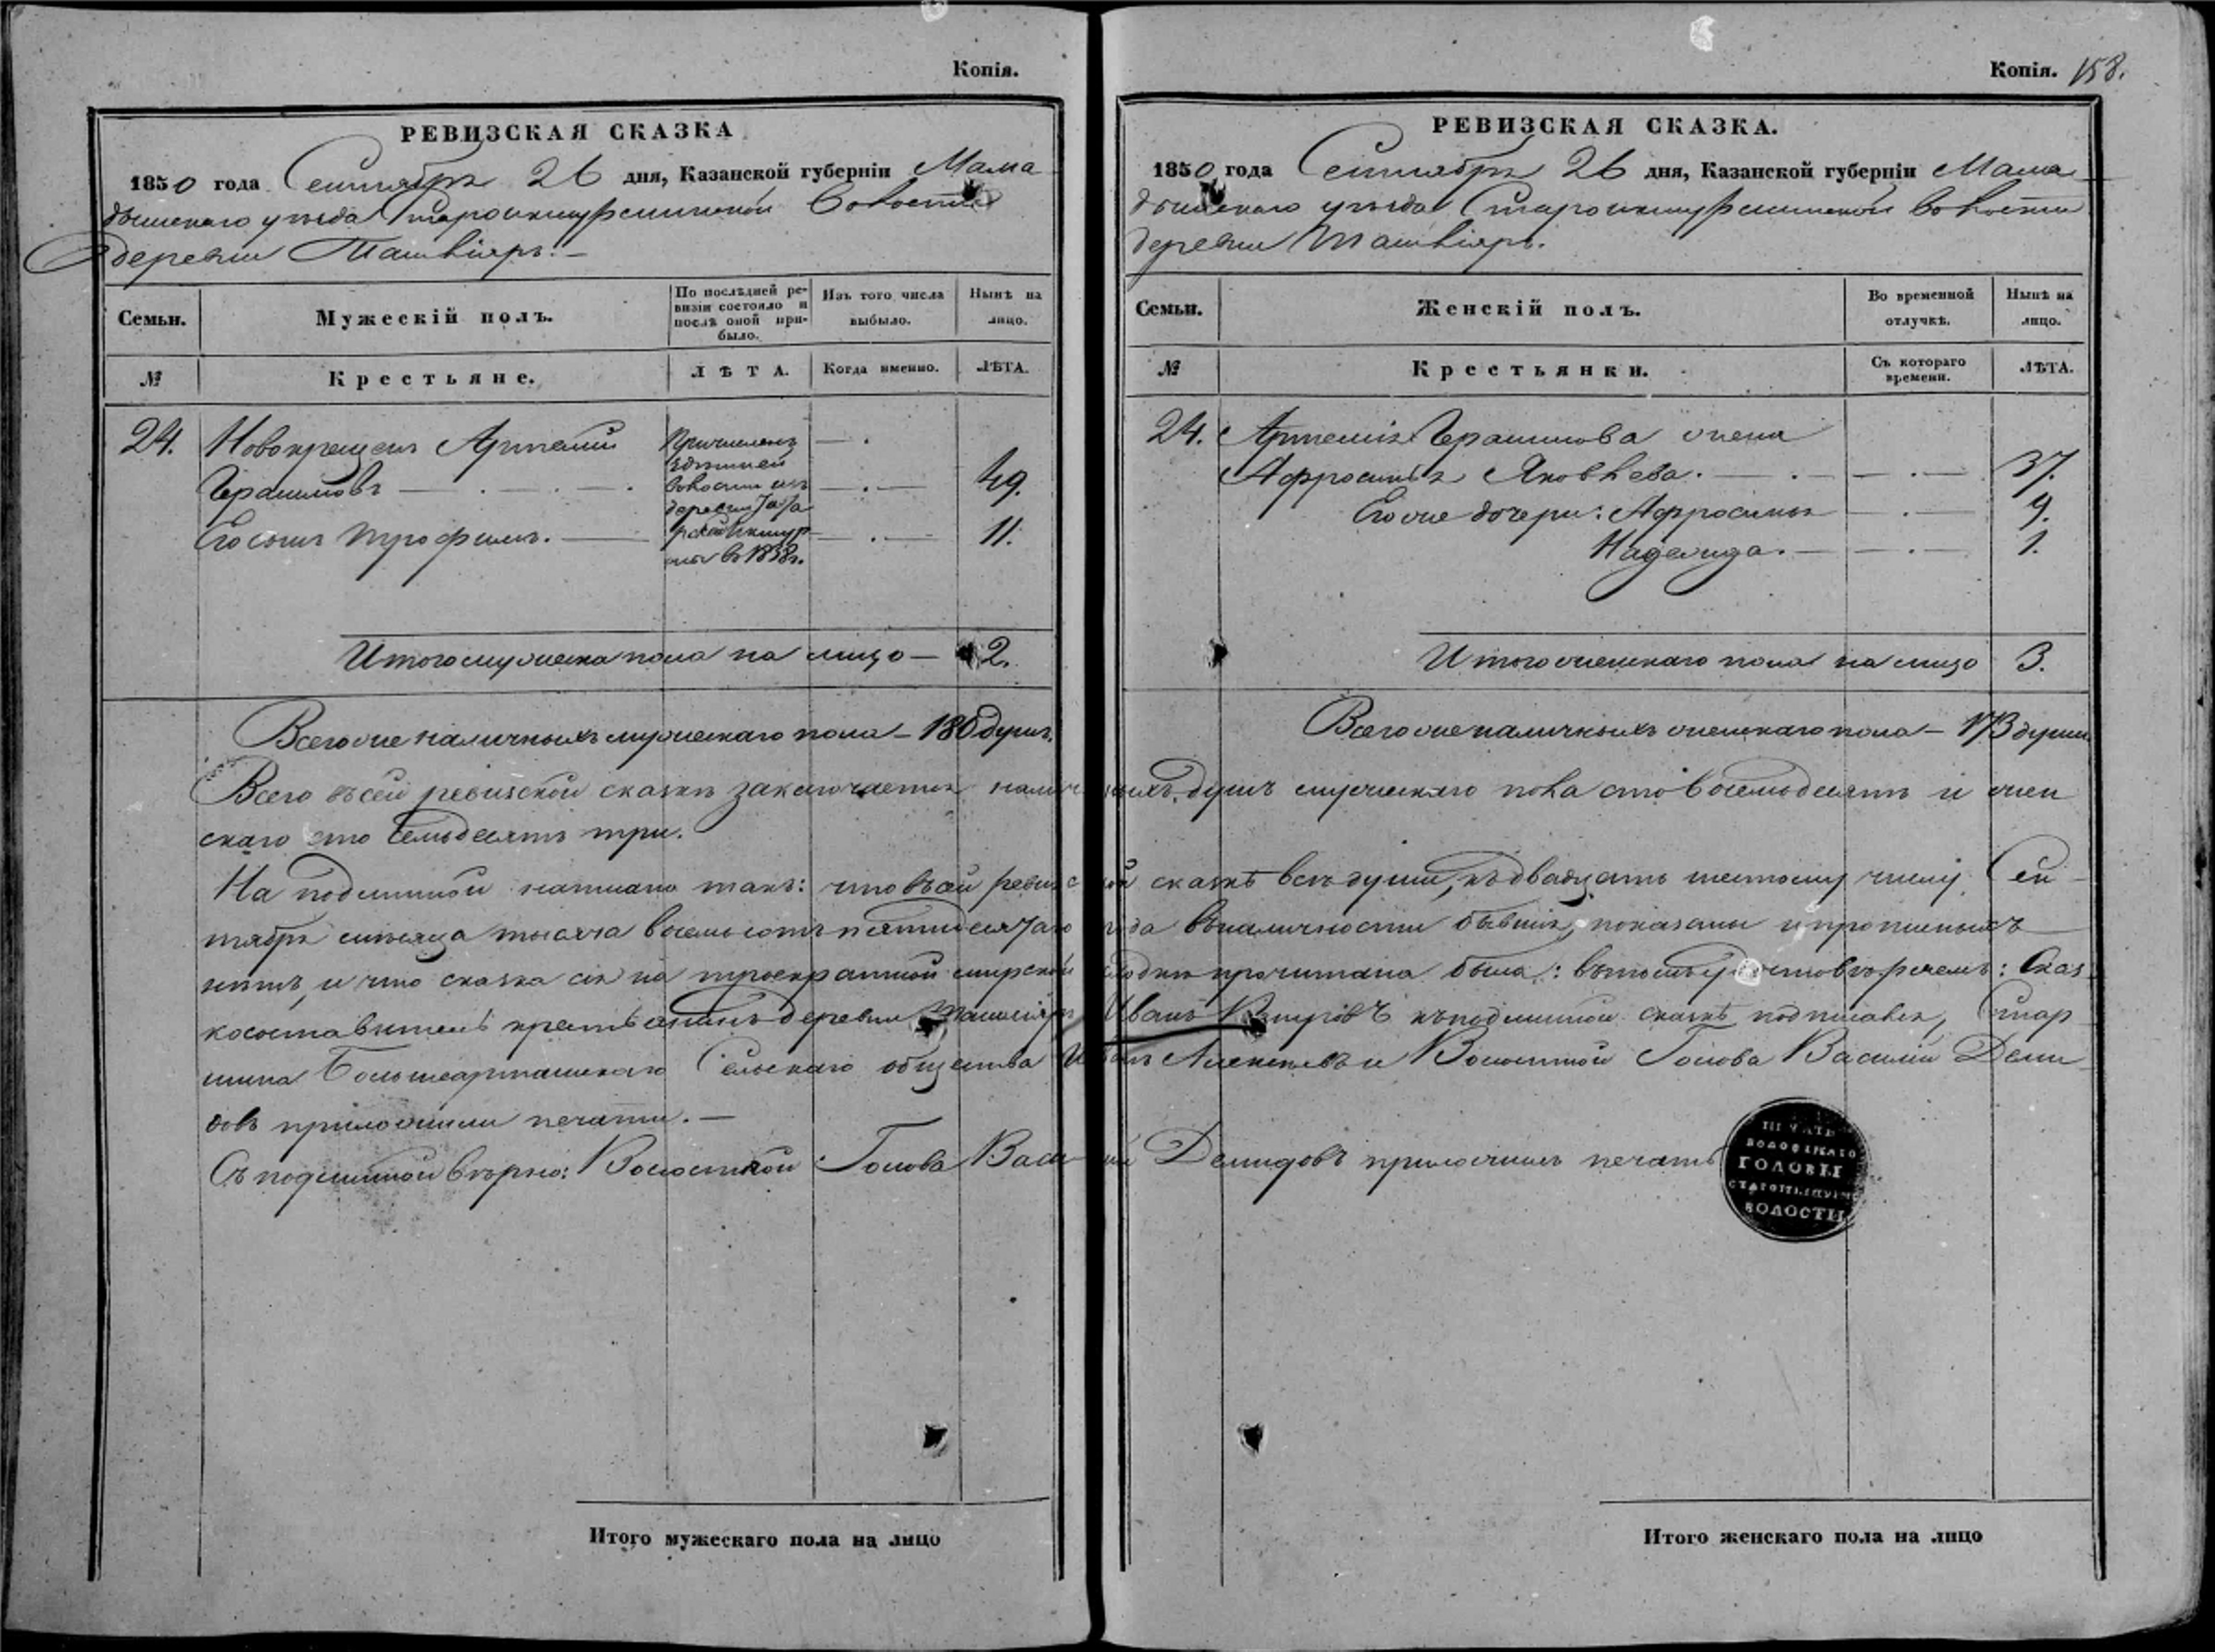 Копія.
РЕВИЗСКАЯ СКАЗКА
1850 года Сентября 26 дня, Казанской губерніи Мама
дышскаго уѣзда Староикшурминской волости
деревни Ташкіяръ. —
Семьи.
Мужескій полъ.
По послѣдней ре-
визіи состояло и
послѣ оной при-
было.
Изъ того числа
выбыло.
Нынѣ на
лицо.
№
Крестьяне.
ЛѢТА.
Когда именно.
ЛѢТА.
24. Новокрещенъ Артемій
Герасимовъ 49.
Причисленъ
здѣшней
волости изъ
деревни
въ 1838 г.
Его сынъ Трофимъ. 11.
Итого мужеска пола на лицо — 2.
Всего же наличныхъ мужескаго пола — 180 душъ.
Копія. 158.
РЕВИЗСКАЯ СКАЗКА.
1850 года Сентября 26 дня, Казанской губерніи Мама
дышскаго уѣзда Староикшурминской волости
деревни Ташкіяръ.
Семьи.
Женскій полъ.
Во временной
отлучкѣ.
Нынѣ на
лицо.
№
Крестьянки.
Съ котораго
времени.
ЛѢТА.
24. Артемія Герасимова жена
Афросинья Яковлева. 37.
Его же дочери: Афросинья 9.
Надежда. 1.
Итого женскаго пола на лицо 3.
Всего же наличныхъ женскаго пола — 173 души
Всего въ сей ревизской сказкѣ заключается наличныхъ душъ мужескаго пола сто восемьдесятъ и жен
скаго сто семьдесятъ три.
На подлинной написано такъ: что въ сей ревизской сказкѣ всѣ души, къ двадцать шестому числу Сен
тября мѣсяца тысяча восемьсотъ пятидесятаго года въ наличности бывшія, показаны и прописныхъ
нѣтъ, и что сказка сія на троекратной мирской сходкѣ прочитана была: въ томъ удостовѣряемъ: Сказ
косоставитель крестьянинъ деревни Ташкіяръ Иванъ къ подлинной сказкѣ подписался, Стар
шина Большеарташскаго Сельскаго общества Иванъ Алексѣевъ и Волостной Голова Василій Деми
довъ приложили печати. —
Съ подлинной вѣрно: Волостной Голова Василій Демидовъ приложилъ печать
ПЕЧАТЬ
ВОЛОСТНАГО
ГОЛОВЫ
ВОЛОСТИ
Итого мужескаго пола на лицо
Итого женскаго пола на лицо